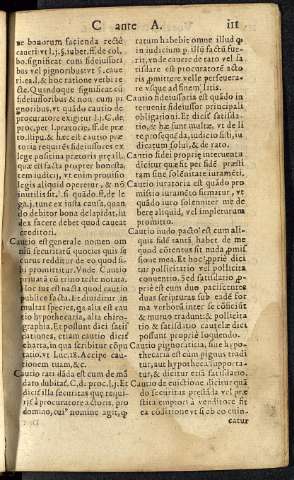 C ante A. 111
uer bonorum facienda recté
caueri vt l.j.§.iubet.ff.de col.
bo. significat cum fideiussori
bus vel pignoribus vt §. caue
ri.ea.l.& hoc ratione verbi re
cte. Quandoque significat cū
fideiussoribus & non cum pi
gnoribus, vt quādo cautio de
procuratore exigitur l.j. C. de,
proc. per l.oratores.ff.de pro
cu. & hæ est cautio præ
toria requirēs fideiussores ex
lege positina prætoris præssi
ta quia est propter honesta
tem iudicij, vt enim prouisio
legis aliquid operetur, & nō
inutilis sit, si quādo.ff.de le
ga.j. tunc ex iusta causa, quan
do debitor bona dilapidat, iu
dex facere debet quod caueat
creditori.
Cautio est generale nomen om
nis securitatis quoties quis se
curus redditur de eo quod si
bi promittitur. Vnde Cautio
priuata cū trino teste notata.
Hoc est facta quasi cautio
publice facta. Et diuiditur in
multas species, qa alia est cau
tio hypothecaria, alia chiro
graphia. Et possunt dici satisf
ationes, etiam cautio dicitur
charta, in qua scribitur Cōfes
ratio. vt Luc. 18. Accipe cau
tionem tuam, &c.
Cautio rati dāda est cum de mā
dato dubitat̄. C. d proc. l.j. Et
dicit̄ illa securitas que requiri
t à procuratore actoris, pro
domino, cuius nomine agit, q
ratum habebit omne illud q
in iudicium p. ipsū factū fue
rit, vnde cauere de rato vel sa
tisdare est procuratorē acto
ris, pmittere velle perseuera
re vsque ad finem litis.
Cautio fideiussoria est quando in
teruenit fideiussor principali
obligationi. Et dicit̄ satisda
tio, & hæ sunt multæ, vt de li
te prosequēda, iudicio sisti, iu
dicatum solui, & de rato.
Cautio fidei proprię interceuntu
dicitur quæ fit per fidē præsti
tam sine solenitate iuraméti,
Cautio iuratoria est quādo pro
missio iuraméto firmatur, vt
quādo iuro solenniter me de
bere aliquid, vel impleturum
promitto.
Cautio nudo pacto est cum ali
quis fidē tantā habet de me
quod cōtentus sit nuda pmis
sione mea. Et hoc proprié dici
tur pollicitatio vel pollicita
conuentio. Sed satisdatio p̄
prié est cum duo paciscentes
duas scripturas sub eadē for
ma verborū inter se cōficiūt
& mutuo tradunt: & pollicita
tio & satisdatio cautelæ dici
possunt proprié loquendo.
Cautio pignoratitia, siue hypo
thecaria est cum pignus tradi
tur, aut hypotheca supporta
tur, & dicitur etiā satisdatio.
Cautio de euictione dicitur quā
do securitas præstāda vel præ
stita emptori à venditore sit
ea cōditione vt si ab eo euin
catur